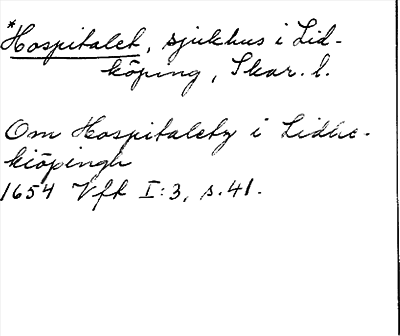 *Hospitalet, sjukhus i Lid-
köping, Skar. l.
Om Hospitaletz i Lidhe-
kiöpingh
1654 Vft I:3, s. 41.